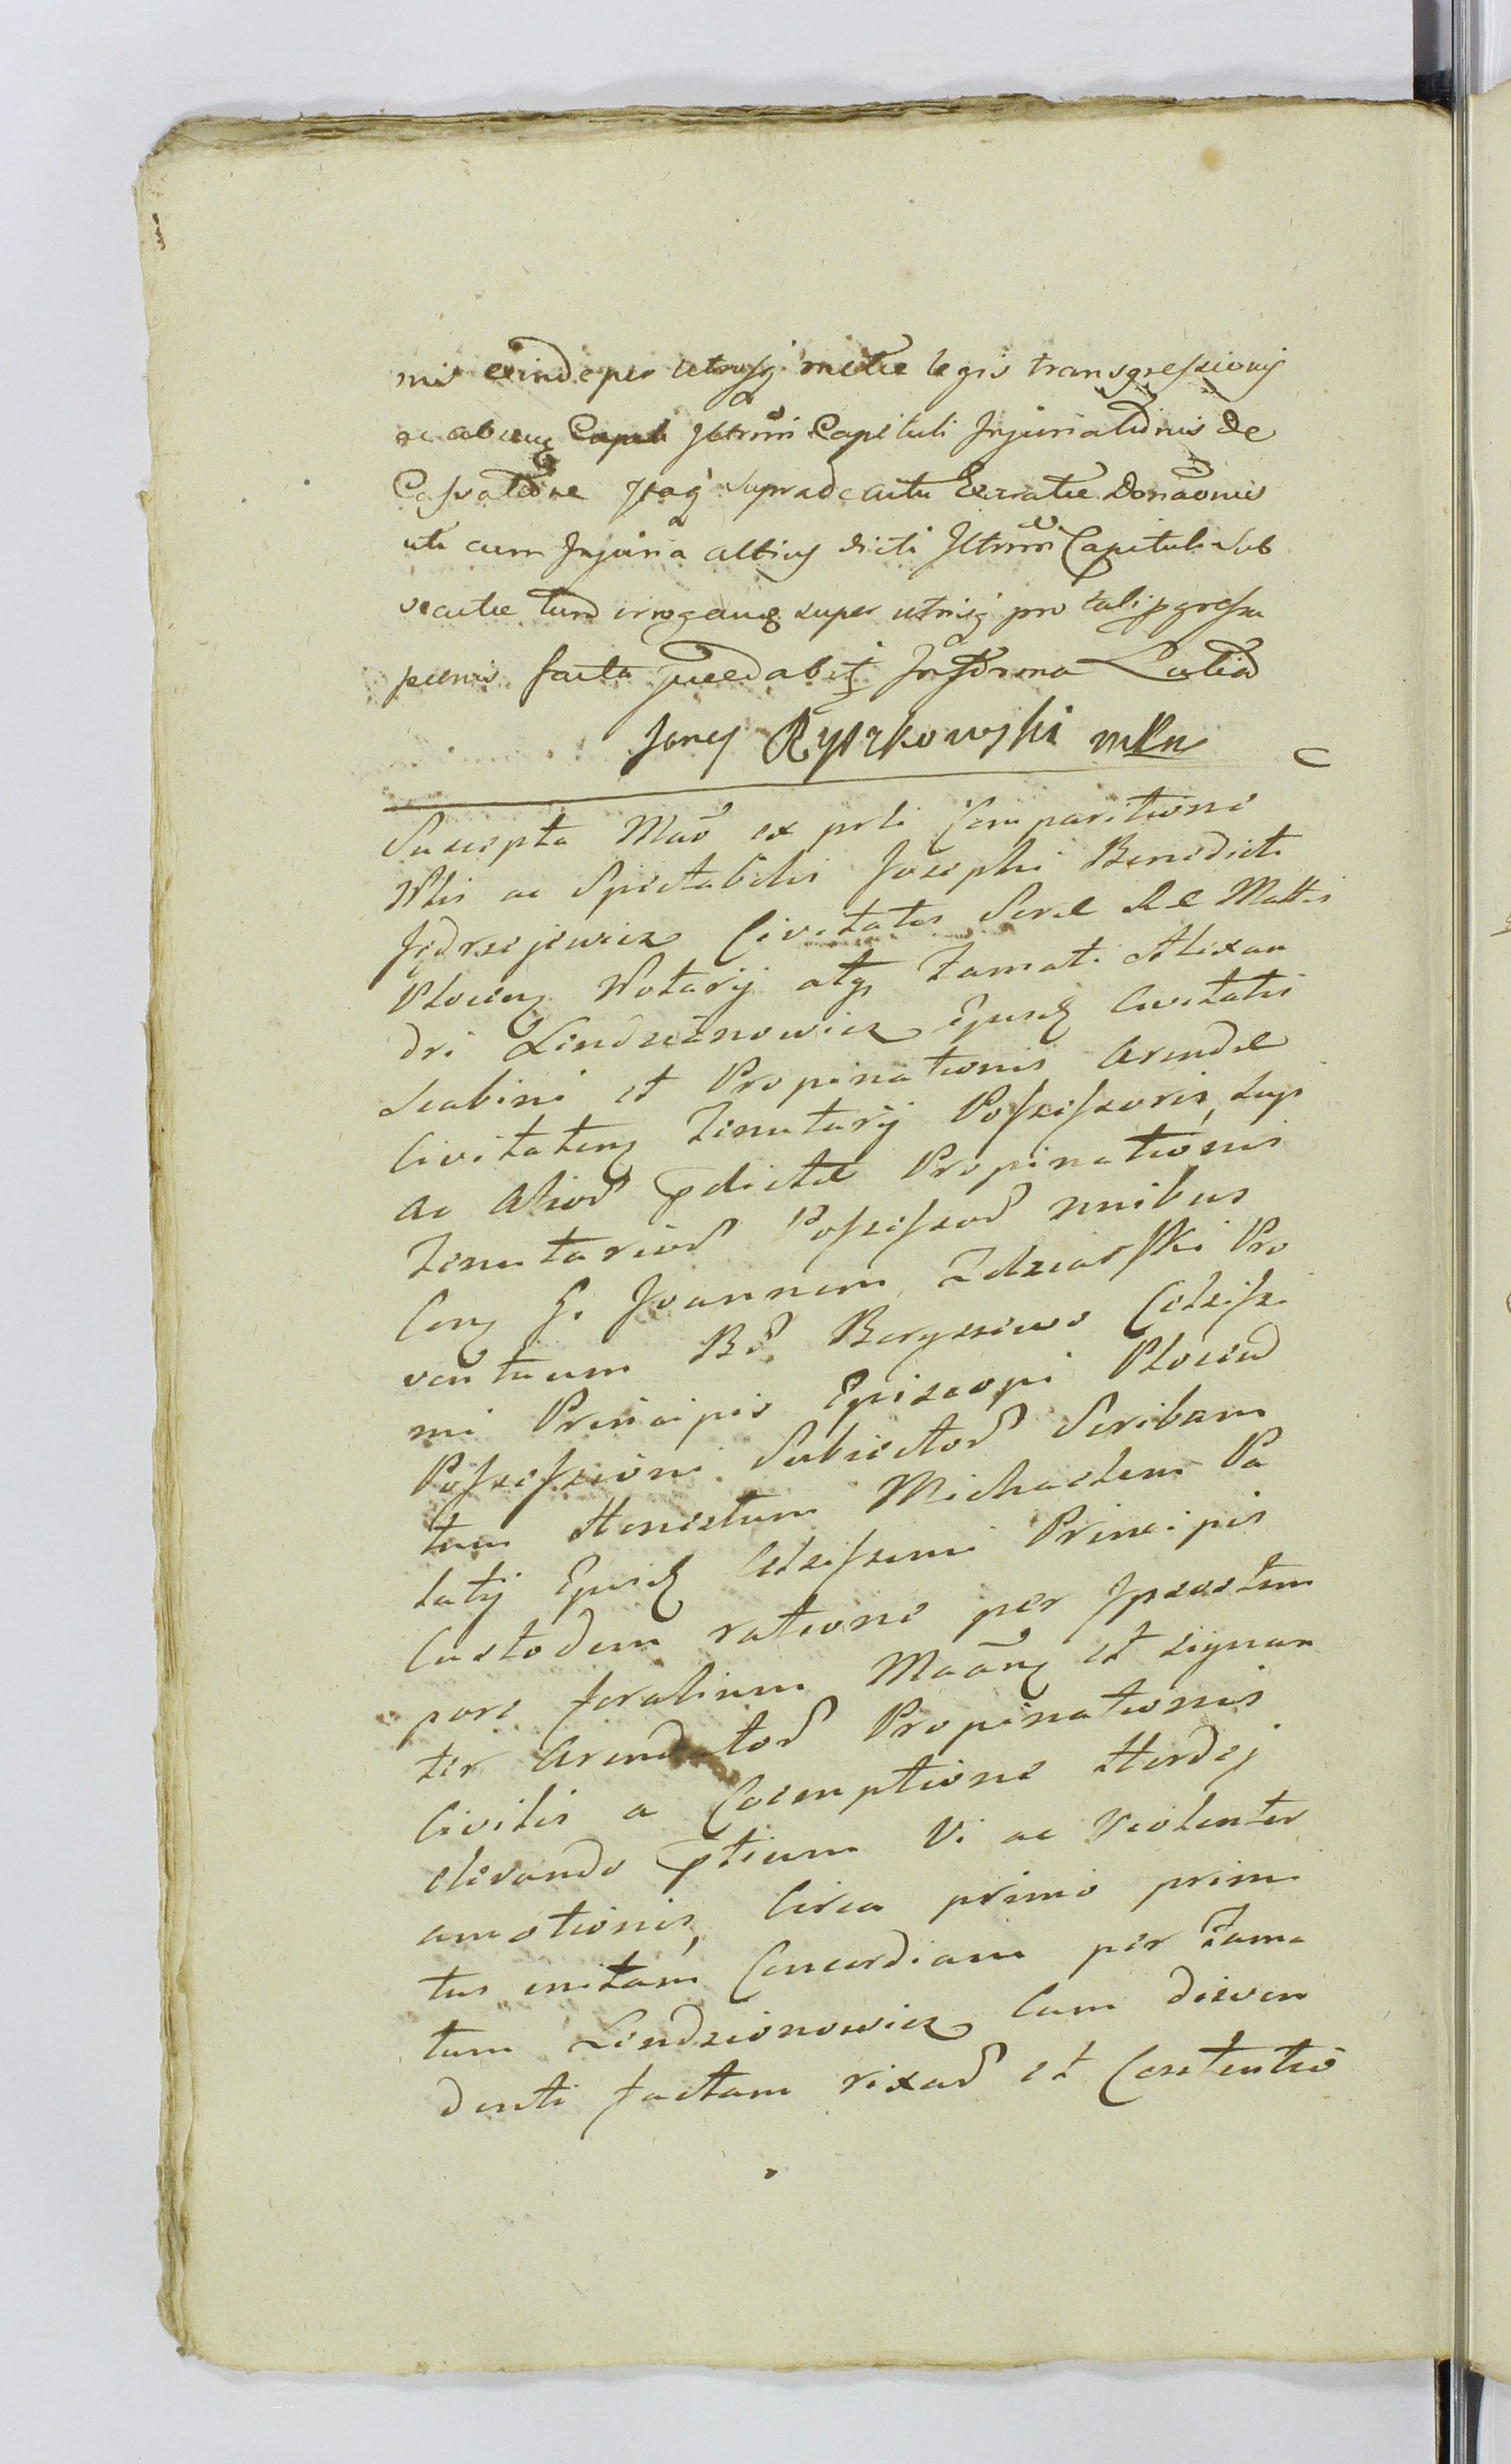 mis exinde per utrosq metæ legis transgressionis
ac abeung Capit Illrmi Capituli Injuriationis de
Cassatione supradeactu Exratæ Donaōnis
uti cum Injuria altius dicti Illrmi Capituli sub
vectæ tum irrogang super utrisq pro tali pgressu
penis facta juedabit Informa Latiori
Janes Ryszkowski mpp
Suscepta Mań ex prti Comparitione
Nblis ac Spectabilis Josephi Benedicti
Jędrzejewicz Civitatis Seræ Ræ Mattis
Plocens Notarij atq Famati Alexan
dri Lendzionowicz Ejusd Civitatis
Scabini et Propinationis Arendæ
Civitatens Tenutarij Possessoris, suo
ac Alior pdictæ Propinationis
Tenutarior Possessor nnibus
Con G. Joannem Zdziarski Pro
ventuum B. Boryszewo Celsissi
mi Principis Episcopi Plocen
Possessioni Subiector Scribam
tum Honestum Michaelem Pa
laty Ejusd Celsissimi Principis
Custodem ratione per Ipsostem
pore foralium Maāng et signan
ter Arendator Propinationis
Civilis a Coemptione Hordej
elevando ptium Vi ac Violenter
amotionis, Circa primo prim
tus enitam Concordiam per Fama
tum Lendzionowicz Cum diseven
denti factam rixar et Contentio